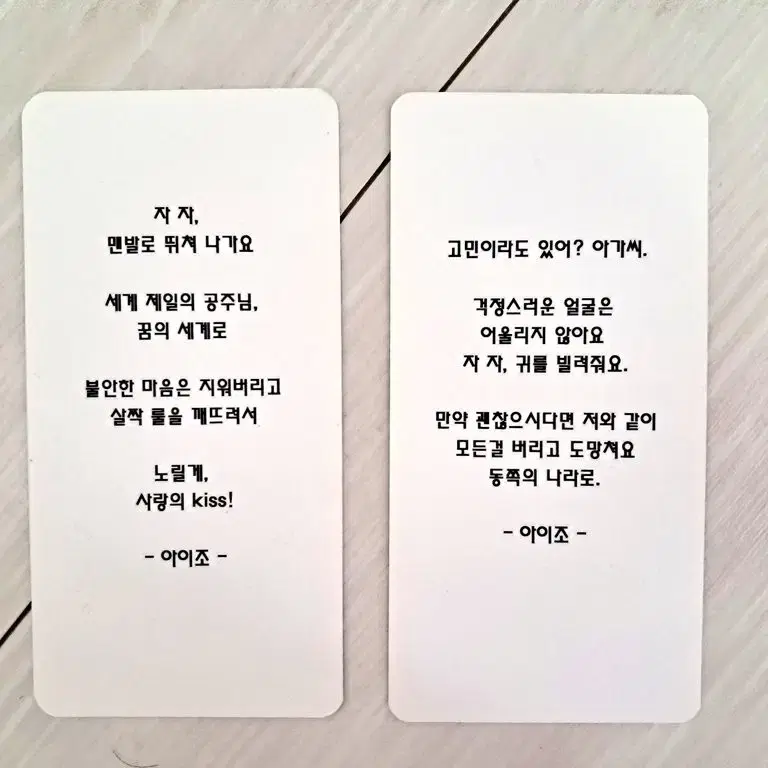 자 자,
맨발로 뛰쳐 나가요
세계 제일의 공주님,
꿈의 세계로
불안한 마음은 지워버리고
살짝 룰을 깨뜨려서
노릴게,
사랑의 kiss!
- 아이조 -
고민이라도 있어? 아가씨.
걱정스러운 얼굴은
어울리지 않아요
자 자, 귀를 빌려줘요.
만약 괜찮으시다면 저와 같이
모든걸 버리고 도망쳐요
동쪽의 나라로.
- 아이조 -